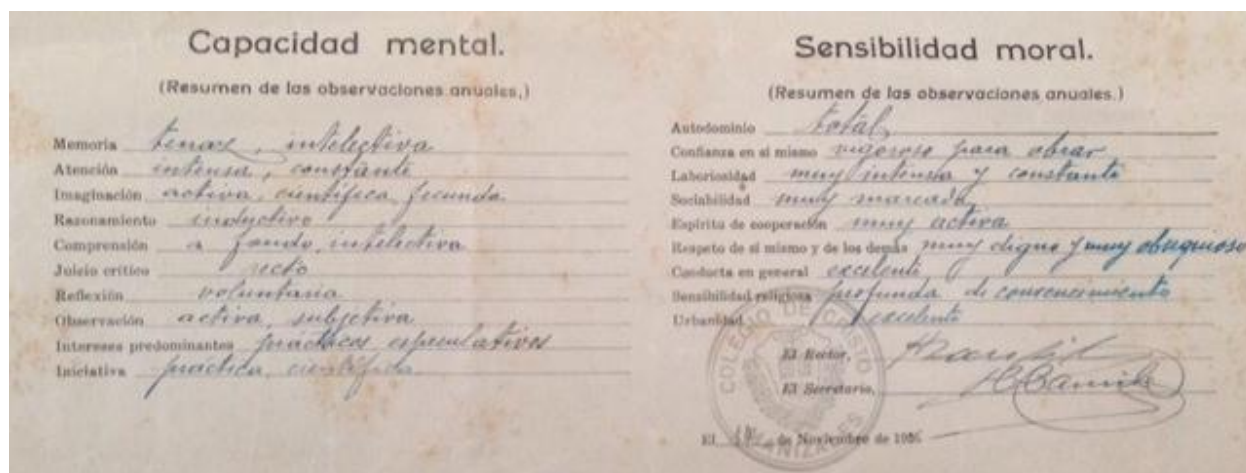 Capacidad mental.
(Resumen de las observaciones anuales.)
Memoria tenaz, intelectiva
Atención intensa, constante
Imaginación activa, científica, fecunda.
Razonamiento inductivo
Comprensión a fondo, intelectiva
Juicio crítico recto
Reflexión voluntaria
Observación activa, subjetiva
Intereses predominantes prácticos especulativos
Iniciativa práctica, científica
Sensibilidad moral.
(Resumen de las observaciones anuales.)
Autodominio total,
Confianza en si mismo vigoroso para obrar
Laboriosidad muy intensa y constante
Sociabilidad muy marcada
Espíritu de cooperación muy activa
Respeto de si mismo y de los demás muy digno y muy obsequioso
Conducta en general excelente
Sensibilidad religiosa profunda de convencimiento
Urbanidad excelente
COLEGIO DE CRISTO
MANIZALES
El Rector,
El Secretario,
El de Noviembre de